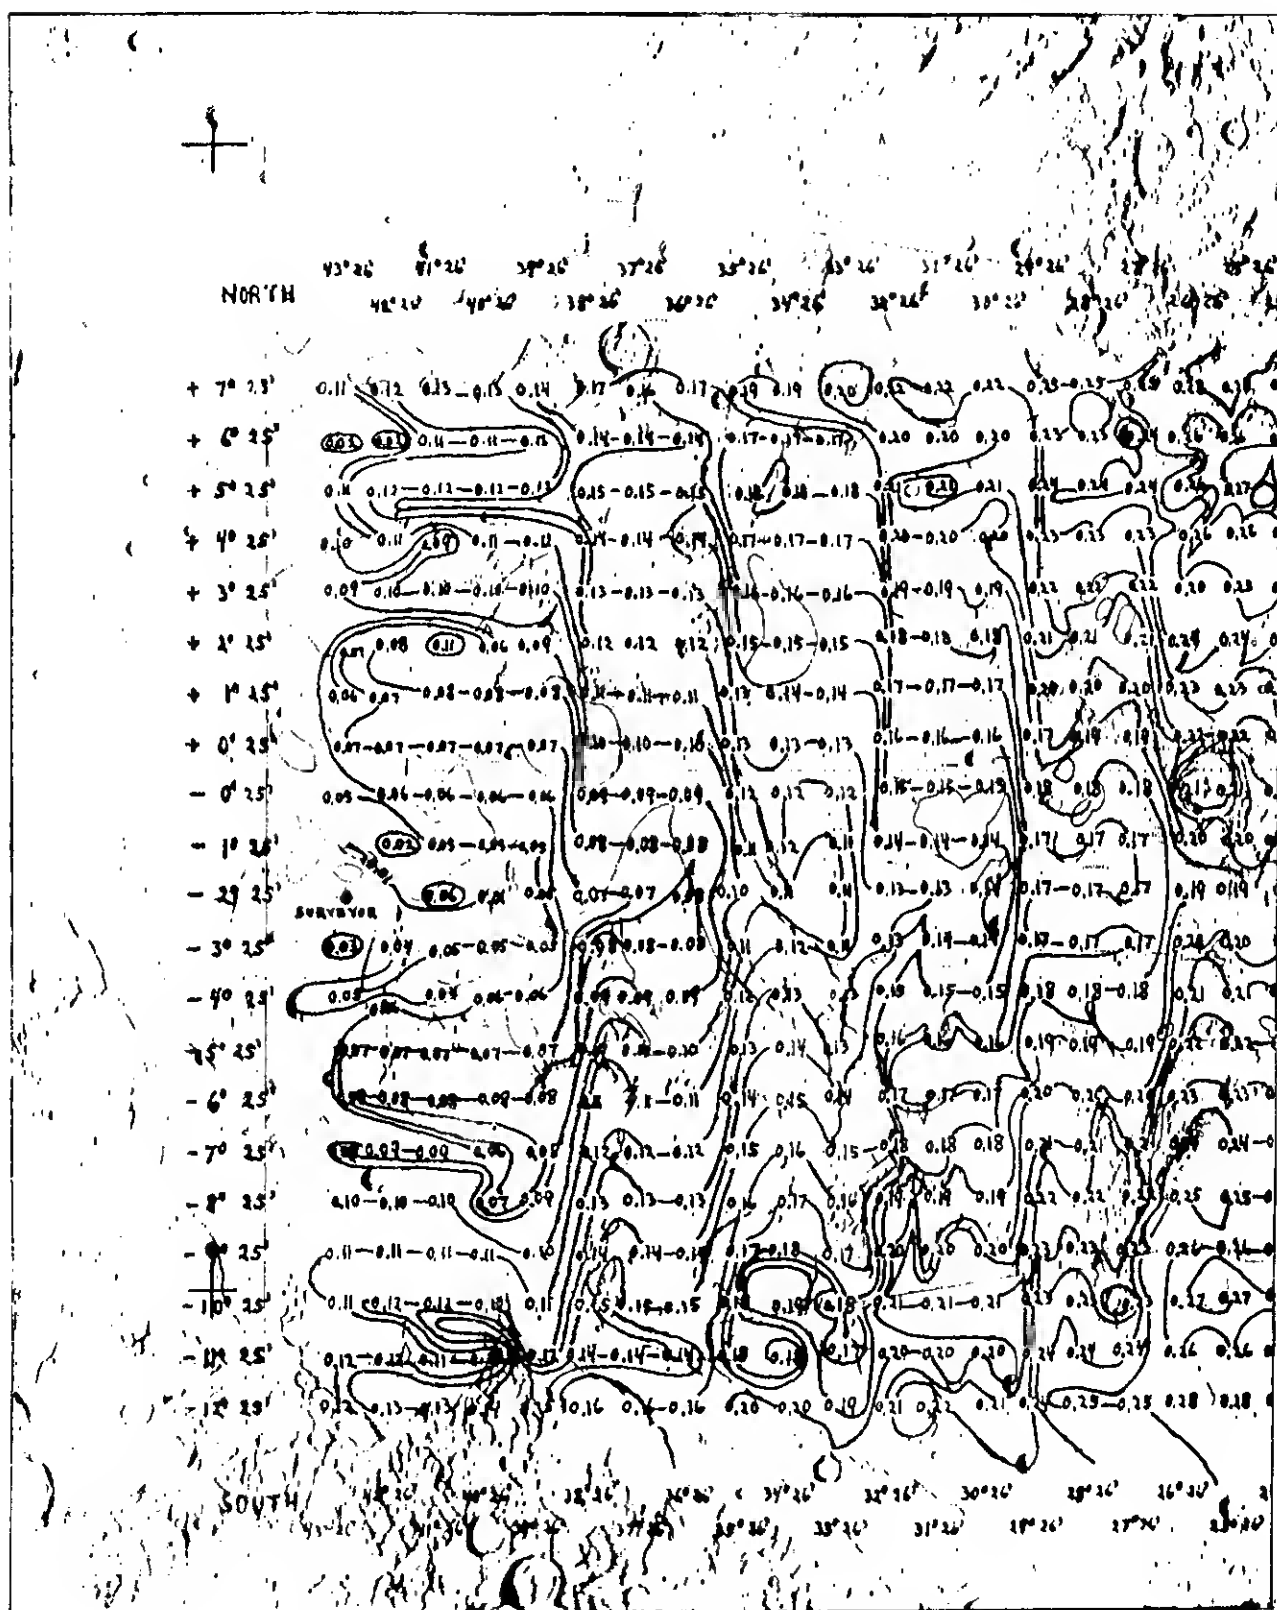 43°26' 41°26' 39°26' 37°26' 35°26' 33°26' 31°26' 29°26' 25°26'
NORTH 42°26' 40°26' 38°26' 36°26' 34°26' 32°26' 30°26' 28°26' 26°26'
+ 7° 25' 0.11 0.12 0.13 0.13 0.14 0.17 0.16 0.17 0.19 0.19 0.20 0.22 0.22 0.22 0.25 0.25 0.25 0.28 0.28
+ 6° 25' 0.11 0.11 0.12 0.14 0.14 0.14 0.17 0.17 0.17 0.20 0.20 0.20 0.23 0.23 0.24 0.26 0.26
+ 5° 25' 0.11 0.12 0.12 0.12 0.12 0.15 0.15 0.15 0.18 0.18 0.18 0.21 0.21 0.24 0.24 0.24 0.27
+ 4° 25' 0.10 0.11 0.09 0.11 0.11 0.14 0.14 0.14 0.17 0.17 0.17 0.20 0.20 0.20 0.23 0.23 0.23 0.26 0.26
+ 3° 25' 0.09 0.10 0.10 0.10 0.10 0.13 0.13 0.13 0.16 0.16 0.16 0.19 0.19 0.19 0.22 0.22 0.22 0.20 0.25
+ 2° 25' 0.07 0.08 0.11 0.06 0.09 0.12 0.12 0.12 0.15 0.15 0.15 0.18 0.18 0.18 0.21 0.21 0.21 0.24 0.24
+ 1° 25' 0.06 0.07 0.08 0.08 0.08 0.11 0.11 0.11 0.13 0.14 0.14 0.17 0.17 0.17 0.20 0.20 0.20 0.23 0.23
+ 0° 25' 0.07 0.07 0.07 0.07 0.07 0.10 0.10 0.10 0.13 0.13 0.13 0.16 0.16 0.16 0.17 0.19 0.19 0.22 0.22
- 0° 25' 0.05 0.06 0.06 0.06 0.06 0.09 0.09 0.09 0.12 0.12 0.12 0.15 0.15 0.15 0.18 0.18 0.18 0.21
- 1° 25' 0.02 0.05 0.05 0.05 0.08 0.08 0.08 0.11 0.12 0.11 0.14 0.14 0.14 0.17 0.17 0.17 0.20 0.20
- 2° 25' 0.06 0.01 0.05 0.07 0.07 0.10 0.11 0.11 0.13 0.13 0.14 0.17 0.17 0.17 0.19 0.19
SURVEYOR
- 3° 25' 0.03 0.04 0.05 0.05 0.05 0.08 0.08 0.08 0.11 0.12 0.11 0.13 0.14 0.14 0.17 0.17 0.17 0.20 0.20
- 4° 25' 0.05 0.04 0.06 0.06 0.09 0.09 0.09 0.12 0.13 0.13 0.15 0.15 0.15 0.18 0.18 0.18 0.21 0.21
- 5° 25' 0.07 0.07 0.07 0.07 0.07 0.10 0.10 0.13 0.14 0.13 0.16 0.16 0.16 0.19 0.19 0.19 0.22 0.22
- 6° 25' 0.08 0.08 0.08 0.08 0.08 0.11 0.11 0.14 0.15 0.14 0.17 0.17 0.17 0.20 0.20 0.20 0.23 0.23
- 7° 25' 0.09 0.09 0.06 0.08 0.12 0.12 0.12 0.15 0.16 0.15 0.18 0.18 0.18 0.21 0.21 0.21 0.24
- 8° 25' 0.10 0.10 0.10 0.07 0.09 0.13 0.13 0.13 0.16 0.17 0.16 0.19 0.19 0.19 0.22 0.22 0.22 0.25 0.25
25' 0.11 0.11 0.11 0.11 0.10 0.14 0.14 0.14 0.17 0.18 0.17 0.20 0.20 0.20 0.23 0.23 0.23 0.26 0.26
- 10° 25' 0.11 0.12 0.12 0.10 0.11 0.15 0.15 0.15 0.18 0.19 0.18 0.21 0.21 0.21 0.23 0.23 0.27 0.27
- 11° 25' 0.12 0.12 0.11 0.12 0.14 0.14 0.14 0.18 0.18 0.17 0.20 0.20 0.20 0.24 0.24 0.24 0.26 0.26
- 12° 25' 0.12 0.13 0.13 0.14 0.15 0.16 0.16 0.16 0.20 0.20 0.19 0.21 0.22 0.21 0.24 0.25 0.25 0.28 0.28
SOUTH 42°26' 40°26' 38°26' 36°26' 34°26' 32°26' 30°26' 28°26' 26°26'
43°26' 41°26' 39°26' 37°26' 35°26' 33°26' 31°26' 29°26' 27°26' 25°26'